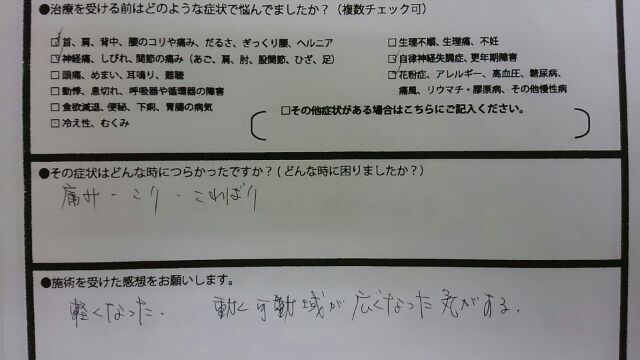 ●治療を受ける前はどのような症状で悩んでましたか？（複数チェック可）
☑首、肩、背中、腰のコリや痛み、だるさ、ぎっくり腰、ヘルニア
☑神経痛、しびれ、関節の痛み（あご、肩、肘、股関節、ひざ、足）
□頭痛、めまい、耳鳴り、難聴
□動悸、息切れ、呼吸器や循環器の障害
□食欲減退、便秘、下痢、胃腸の病気
□冷え性、むくみ
□生理不順、生理痛、不妊
☑自律神経失調症、更年期障害
☑花粉症、アレルギー、高血圧、糖尿病、
痛風、リウマチ・膠原病、その他慢性病
□その他症状がある場合はこちらにご記入ください。
●その症状はどんな時につらかったですか？(どんな時に困りましたか？)
痛み・こり・こわばり
●施術を受けた感想をお願いします。
軽くなった. 動く可動域が広くなった気がある.